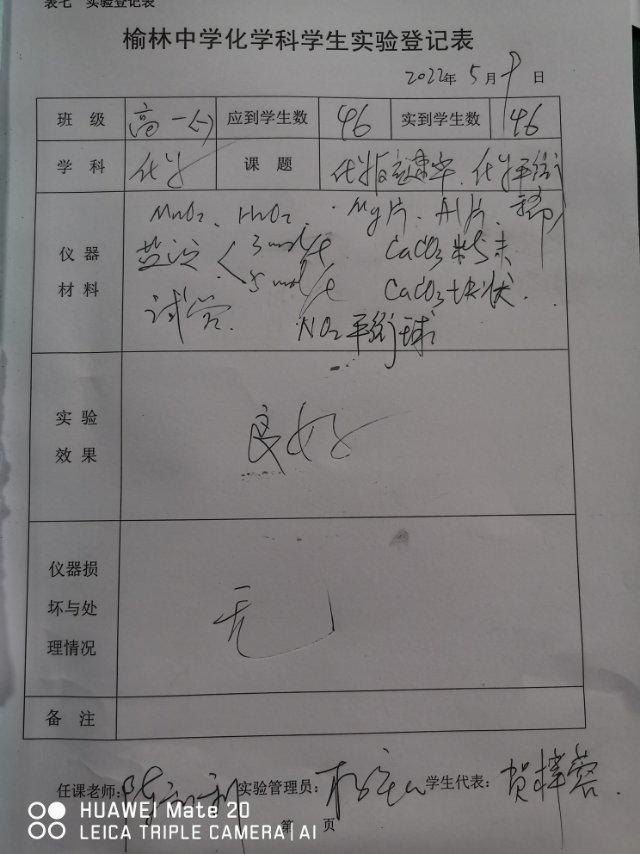 表七 实验登记表
榆林中学化学科学生实验登记表
2022年5月9日
班 级 高一(1) 应到学生数 46 实到学生数 46
学 科 化学 课 题 化学反应速率、化学平衡
仪 器
材 料
MnO₂、H₂O₂、Mg片、Al片、稀
盐酸 3mol/L CaCO₃粉末
5mol/L CaCO₃块状
试管 NO₂平衡球
实 验
效 果
良好
仪器损
坏与处
理情况
无
备 注
任课老师: 实验管理员: 学生代表:贺
第 页
HUAWEI Mate 20
LEICA TRIPLE CAMERA | AI